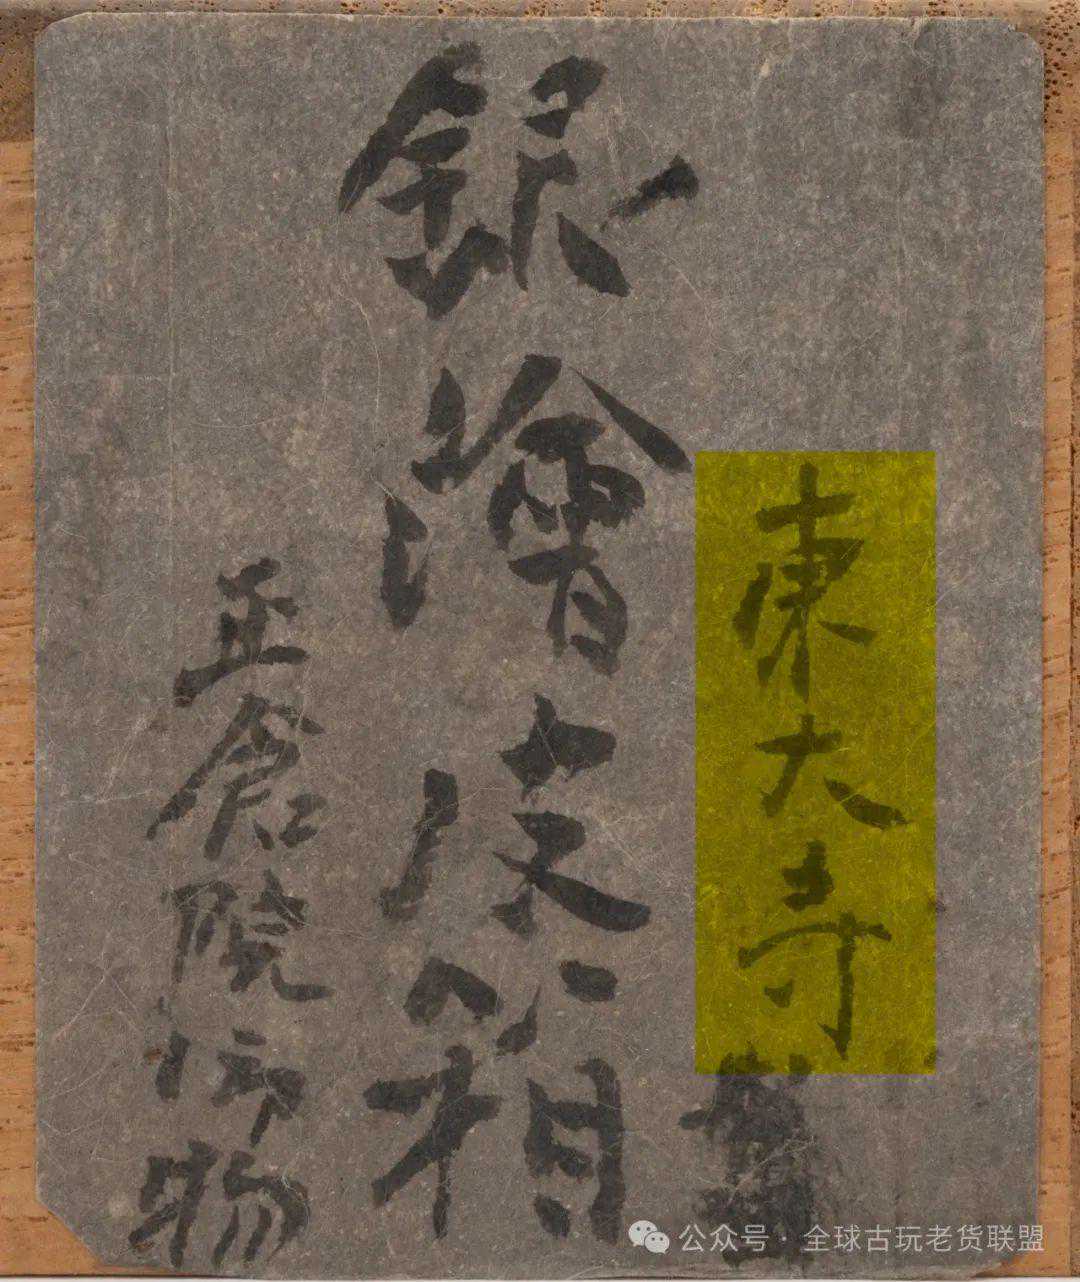 東大寺
銀澮漆箱
正倉院御物
公众号 · 全球古玩老货联盟